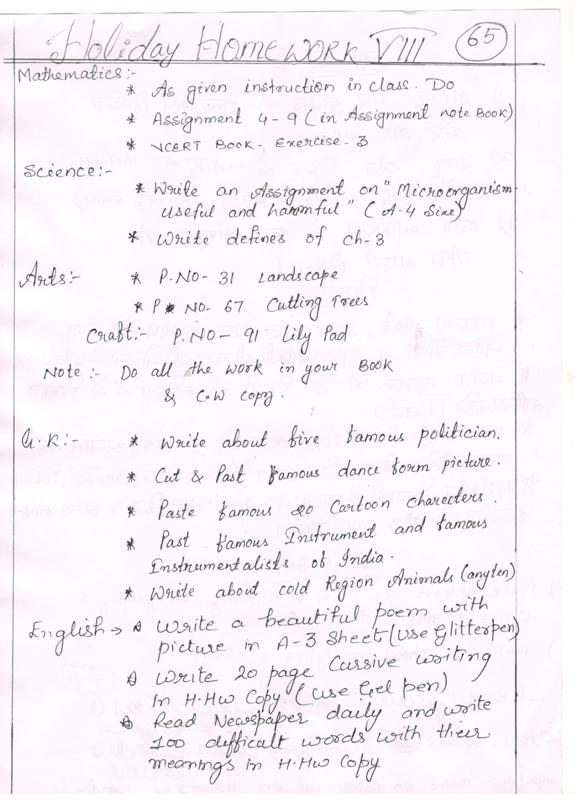 Holiday Homework VIII 65
Mathematics:-
* As given instruction in class. Do
* Assignment 4-9 (in Assignment note Book)
* NCERT Book- Exercise-3
Science:-
* Write an Assignment on "Microorganism-
useful and harmful" (A-4 Size)
* Write defines of ch-3
Arts:- * P.NO- 31 Landscape
* P NO- 67 Cutting Trees
Craft:- P.NO- 91 Lily Pad
Note:- Do all the work in your Book
& C.W copy.
G.K:- * Write about five famous politician.
* Cut & Past famous dance form picture.
* Paste famous 20 Cartoon charecters.
* Past famous Instrument and famous
Instrumentalists of India.
* Write about cold Region Animals (anyten)
English → Write a beautiful poem with
picture in A-3 Sheet (Use Glitterpen)
Write 20 page Cursive writing
in H.Hw Copy. (Use Gel pen)
Read Newspaper daily and write
100 difficult words with their
meanings in H.Hw Copy